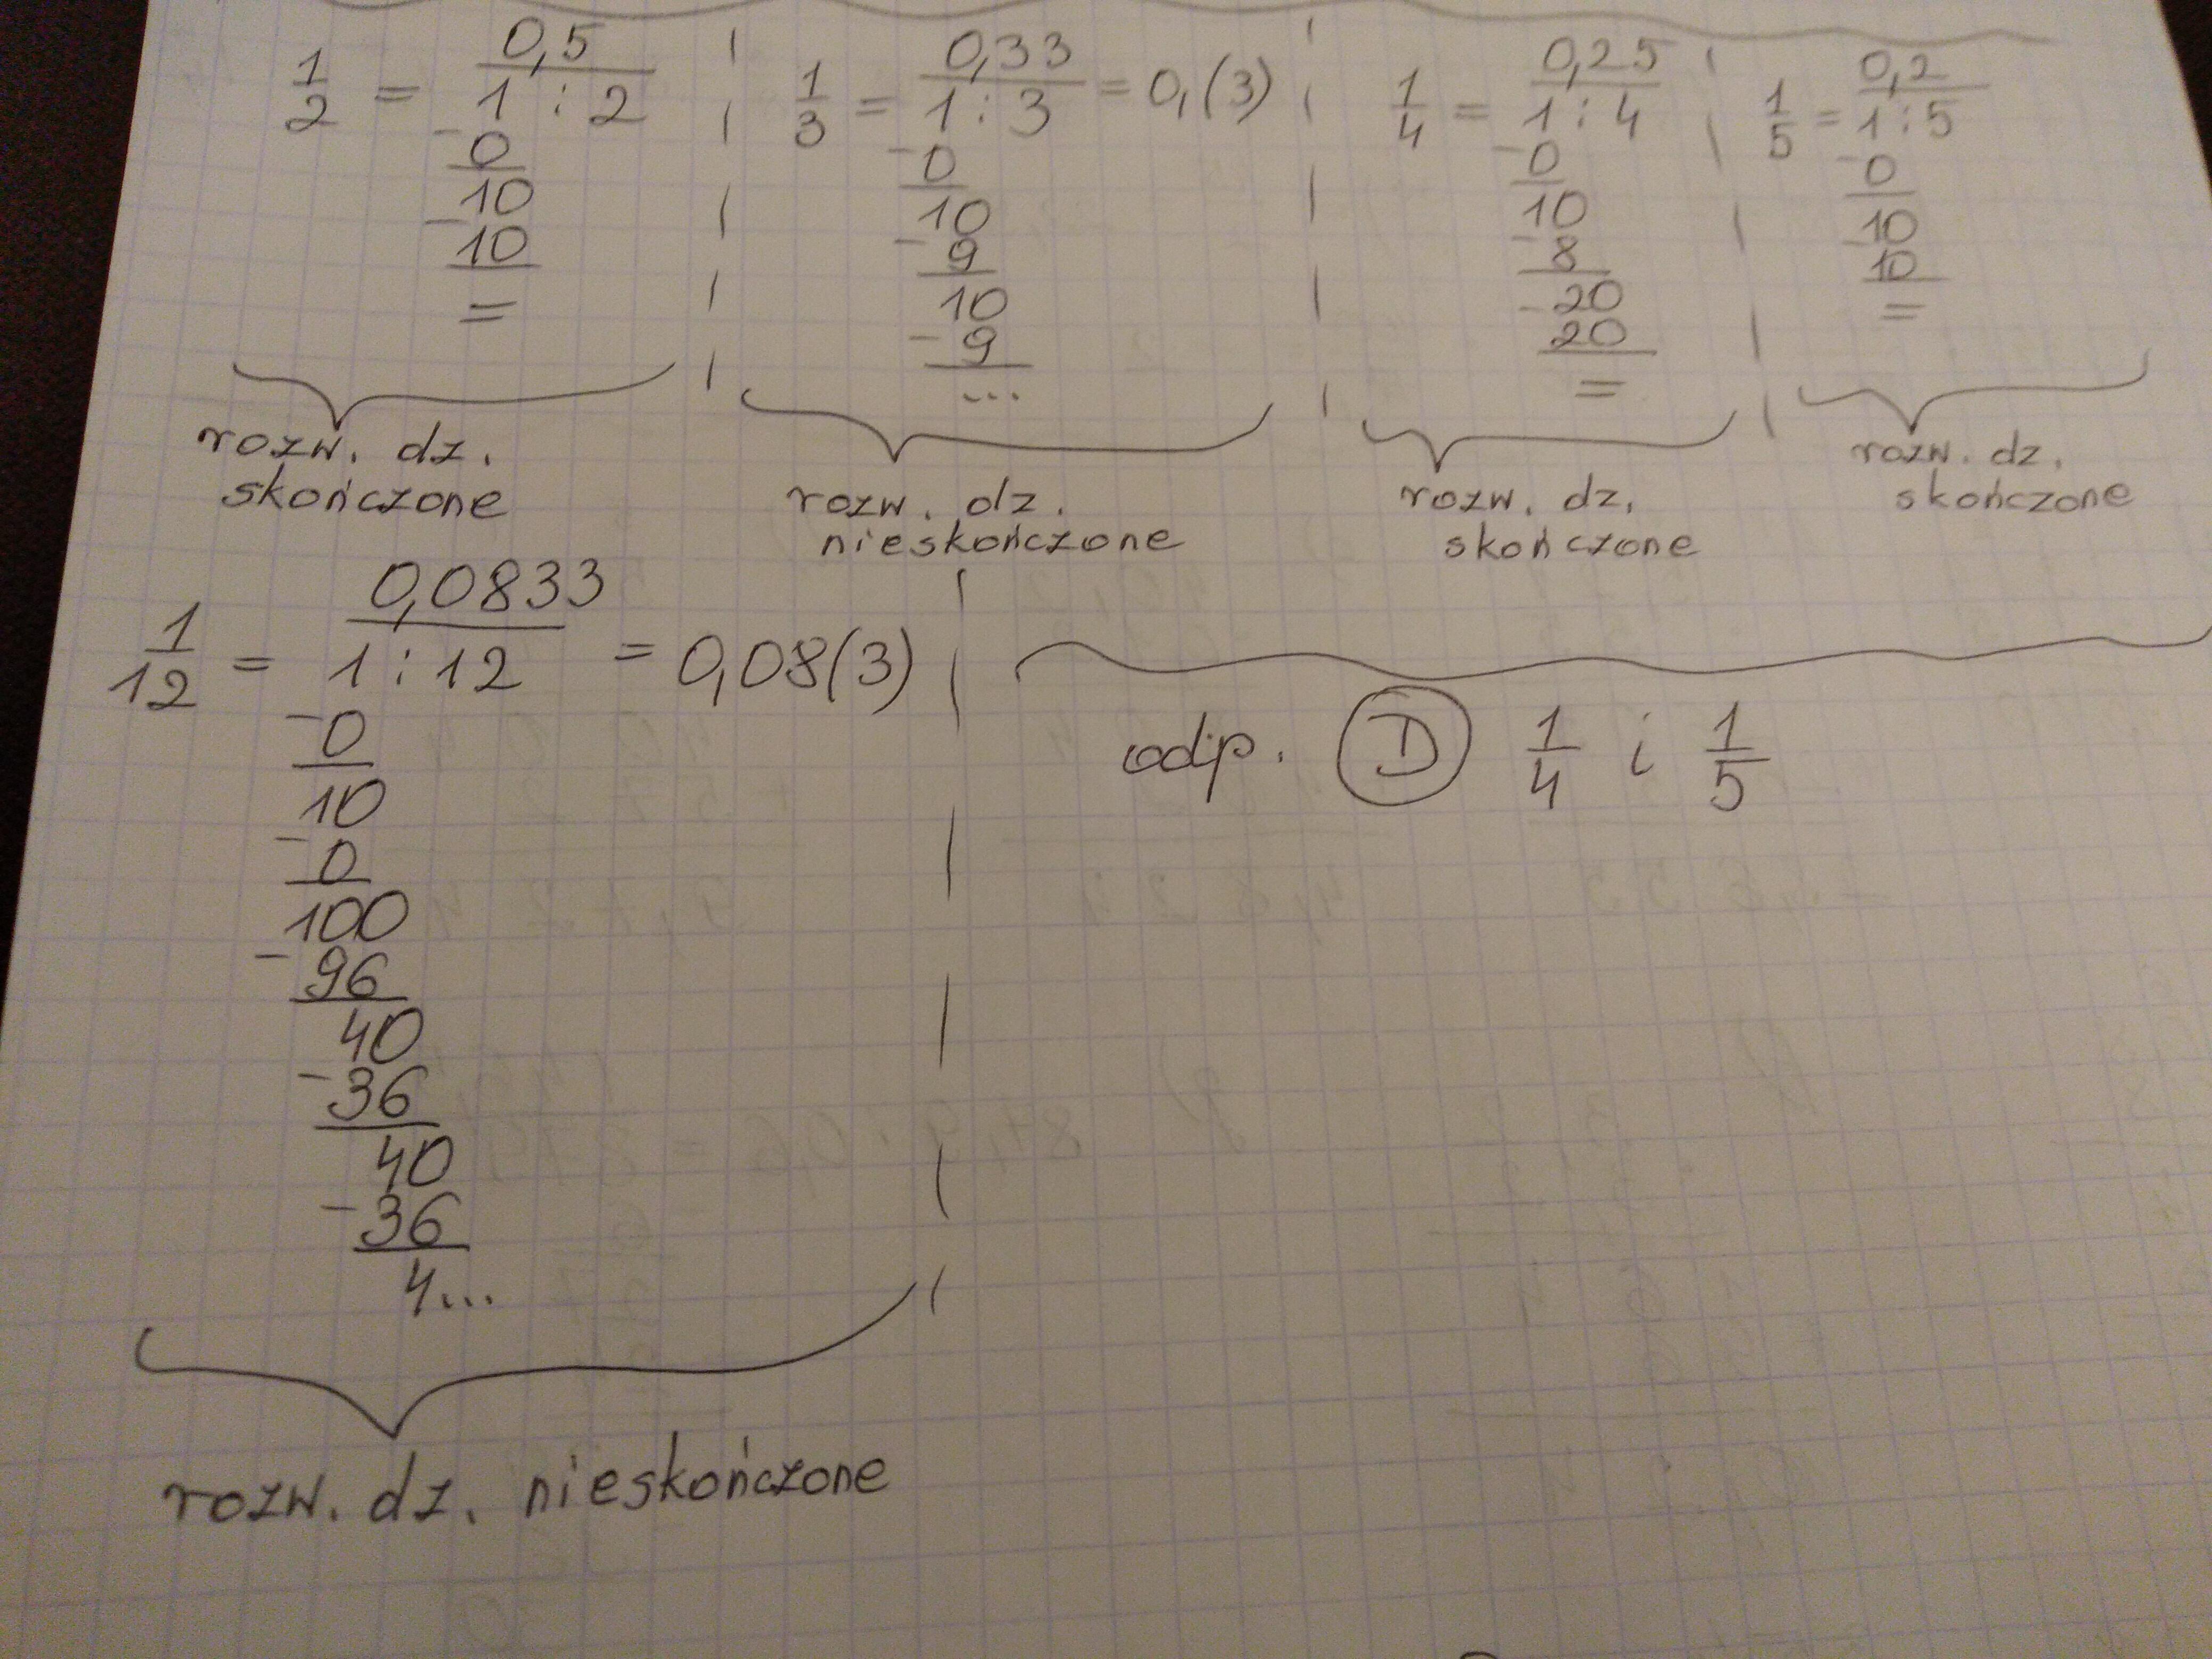 1/2 = 0,5
1 : 2
- 0
10
- 10
=
rozw. dz.
skończone
1/3 = 0,33
1 : 3 = 0,(3)
- 0
10
- 9
10
- 9
...
rozw. dz.
nieskończone
1/4 = 0,25
1 : 4
- 0
10
- 8
- 20
20
=
rozw. dz.
skończone
1/5 = 0,2
1 : 5
- 0
10
- 10
=
rozw. dz.
skończone
1/12 = 0,0833
1 : 12 = 0,08(3)
- 0
10
- 0
100
- 96
40
- 36
40
- 36
4...
rozw. dz. nieskończone
odp. D 1/4 i 1/5